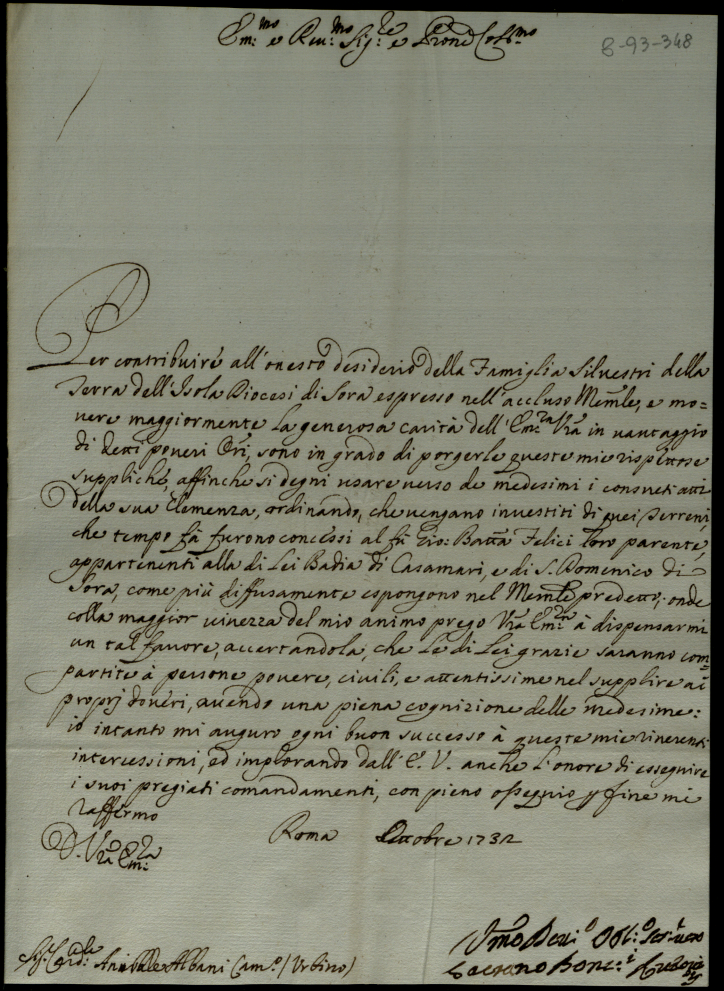 Em:mo e Reu:mo Sig:re e Prone Col:mo
B-93-348
Per contribuire all'onesto desiderio della Famiglia Silvestri della
Terra dell'Isola Diocesi di Sora espresso nell'accluso Memle, e mo=
uere maggiormente la generosa carità dell'Em:za Vra in uantaggio
di detti poueri Ori, sono in grado di porgerle queste mie rispettose
suppliche, affinche si degni usare uerso de medesimi i consueti atti
della sua Clemenza, ordinando, che uengano inuestiti di quei Terreni,
che tempo fà furono concessi al fù Gio: Batta Felici loro parente,
appartenenti alla di Lei Badia di Casamari, e di S. Domenico di
Sora, come più diffusamente espongono nel Memle predetto; onde
colla maggior uiuezza del mio animo prego Vra Em:za à dispensarmi
un tal fauore, accertandola, che le di Lei grazie saranno com=
partite à persone pouere, ciuili, e attentissime nel supplire ai
proprj doueri, auendo una piena cognizione delle medesime:
io intanto mi auguro ogni buon successo à queste mie riuerenti
intercessioni, ed implorando dall'E. V. anche l'onore di esseguire
i suoi pregiati comandamenti, con pieno ossequio per fine mi
raffermo
D. Vra Em:za
Roma Ottobre 1732
Sig: Card:le Annibale Albani Cam:o (Urbino)
Umo Deu:o Obl:o Ser:re uero
Gaetano